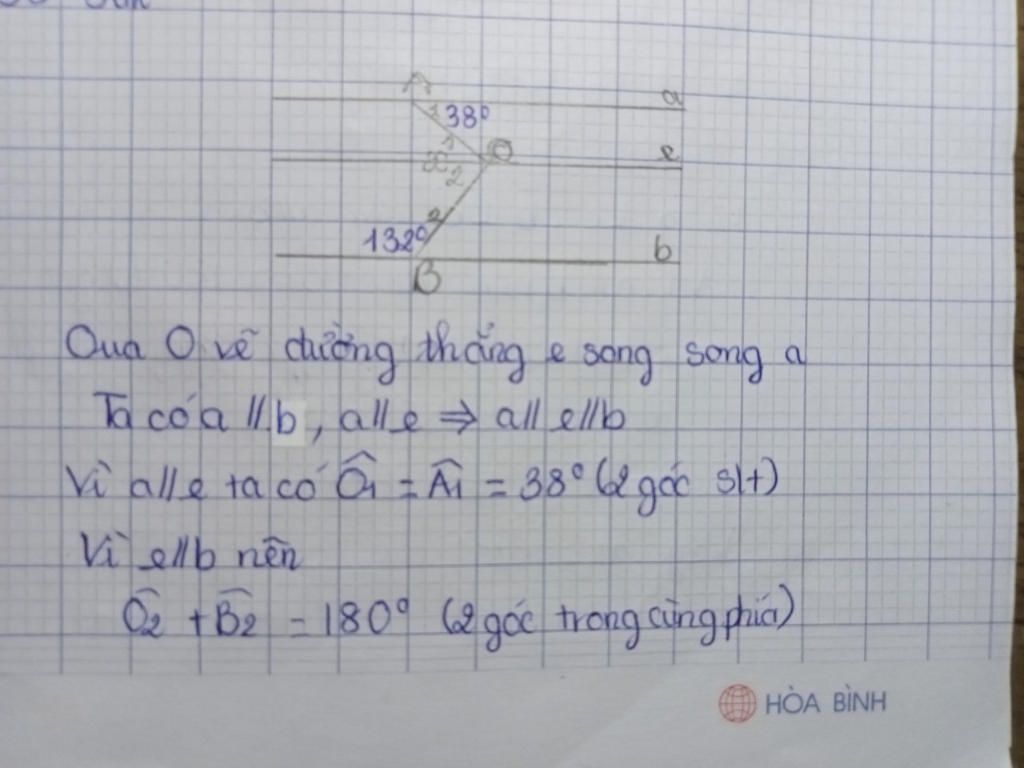 A
a
1 38°
1
O
e
x 2
2
132°
b
B
Qua O vẽ đường thẳng e song song a
Ta có a // b, a // e ⇒ a // e // b
Vì a // e ta có Ô1 = Â1 = 38° (2 góc slt)
Vì e // b nên
Ô2 + B̂2 = 180° (2 góc trong cùng phía)
HÒA BÌNH